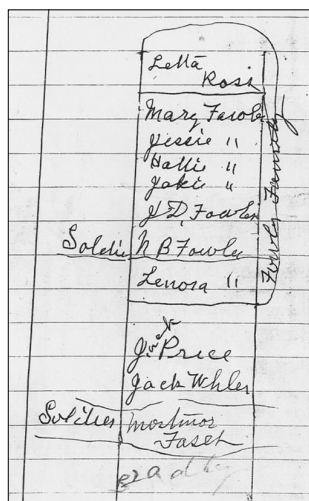 Letta
Ross
Mary Fowler
Jessie "
Hallie "
Jakie "
J. D. Fowler
Soldier N B Fowler
Lenora "
Fowler Family
Price
Jack Whler
Soldier